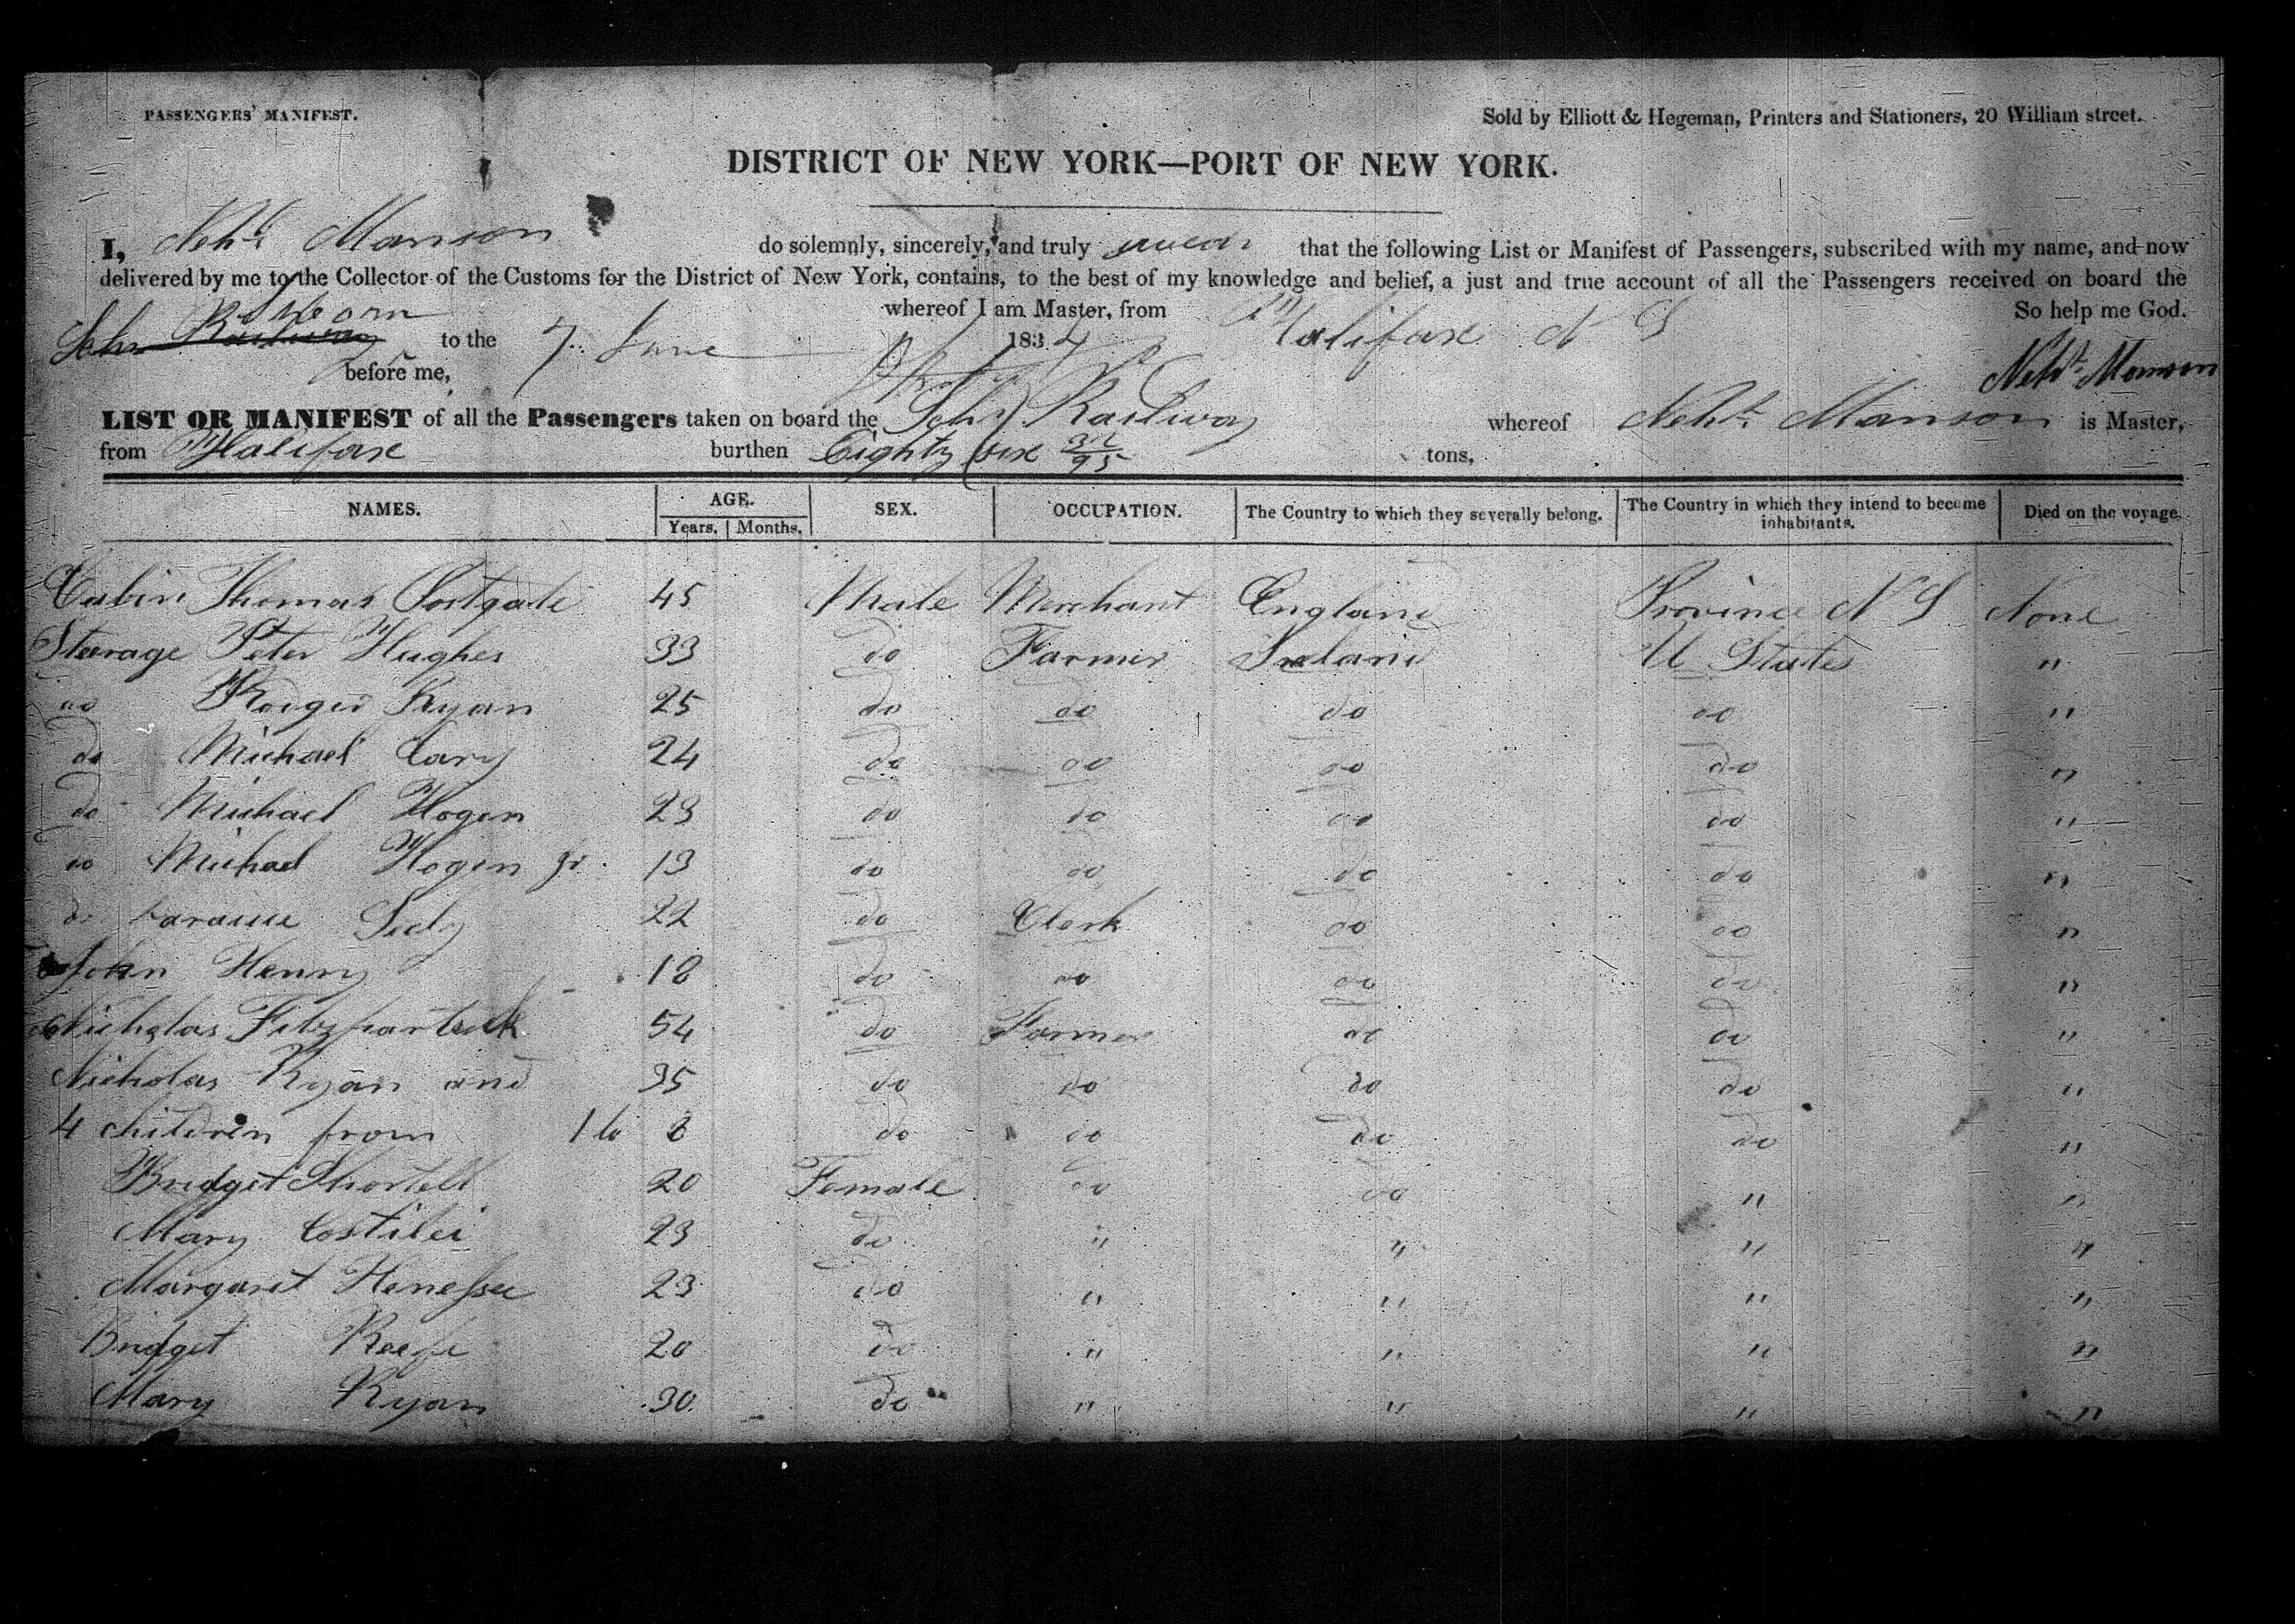 PASSENGERS' MANIFEST.
Sold by Elliott & Hegeman, Printers and Stationers, 20 William street.
DISTRICT OF NEW YORK—PORT OF NEW YORK.
I, Neh. Manson do solemnly, sincerely, and truly swear that the following List or Manifest of Passengers, subscribed with my name, and now
delivered by me to the Collector of the Customs for the District of New York, contains, to the best of my knowledge and belief, a just and true account of all the Passengers received on board the
Schr Railway whereof I am Master, from Halifax N S So help me God.
Sworn to the 7 June 1834
before me, Neh. Manson
LIST OR MANIFEST of all the Passengers taken on board the Schr Railway whereof Neh. Manson is Master,
from Halifax burthen Eighty six 32/95 tons,
NAMES. AGE. Years. Months. SEX. OCCUPATION. The Country to which they severally belong. The Country in which they intend to become inhabitants. Died on the voyage.
Cabin Thomas Postgate 45 Male Merchant England Province N S None
Steerage Peter Hughes 33 do Farmer Ireland U States "
do Rodger Ryan 25 do do do do "
do Michael Cary 24 do do do do "
do Michael Hogen 23 do do do do "
do Michael Hogen Jr. 13 do do do do "
do 22 do Clerk do do "
John Henry 18 do do do do "
Nicholas Fitzpartrick 54 do Farmer do do "
Nicholas Ryan and 35 do do do do "
4 children from 1 to 8 do do do do "
Bridget Shortell 20 Female do do " "
Mary Costilei 23 do " " " "
Margaret Henessee 23 do " " " "
Bridget Keefe 20 do " " " "
Mary Ryan 30 do " " " "